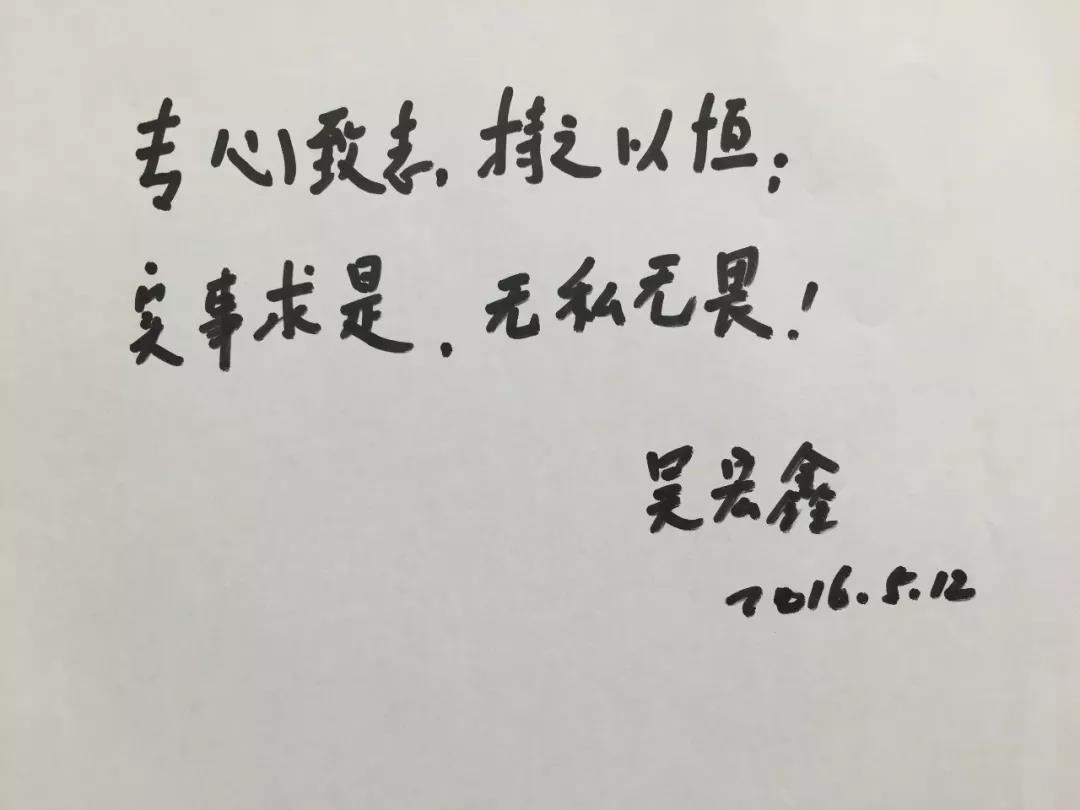 专心致志，持之以恒；
实事求是，无私无畏！
吴宏鑫
2016.5.12